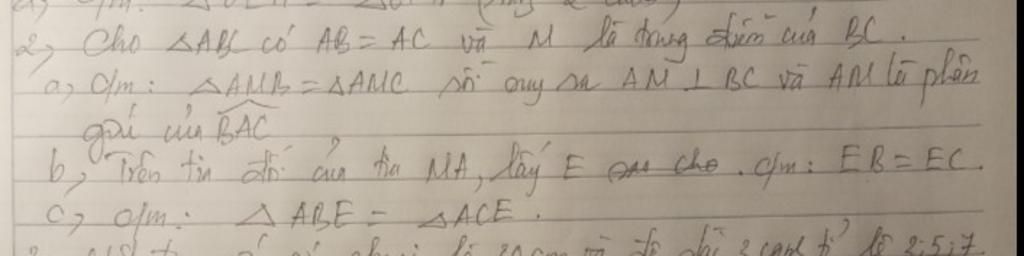 2, Cho △ABC có AB = AC và M là trung điểm của BC.
a, c/m: △AMB = △AMC rồi suy ra AM ⊥ BC và AM là phân
giác của BAC
b, Trên tia đối của tia MA, lấy E sao cho. c/m: EB = EC.
c, c/m: △ ABE = △ACE.